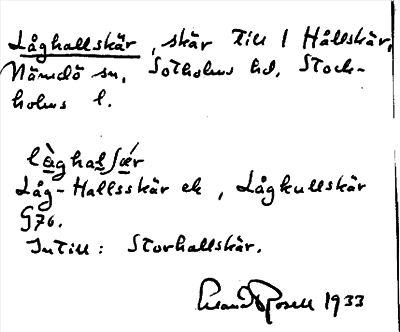 Låghallskär, skär till 1 Hållskär,
Nämdö sn, Sotholms hd, Stock-
holms l.
lå̀ghalʃǽr
Låg-Hallsskär ek, Lågkullskär
G76.
Intill: Storhallskär.
Erland Rosell 1933